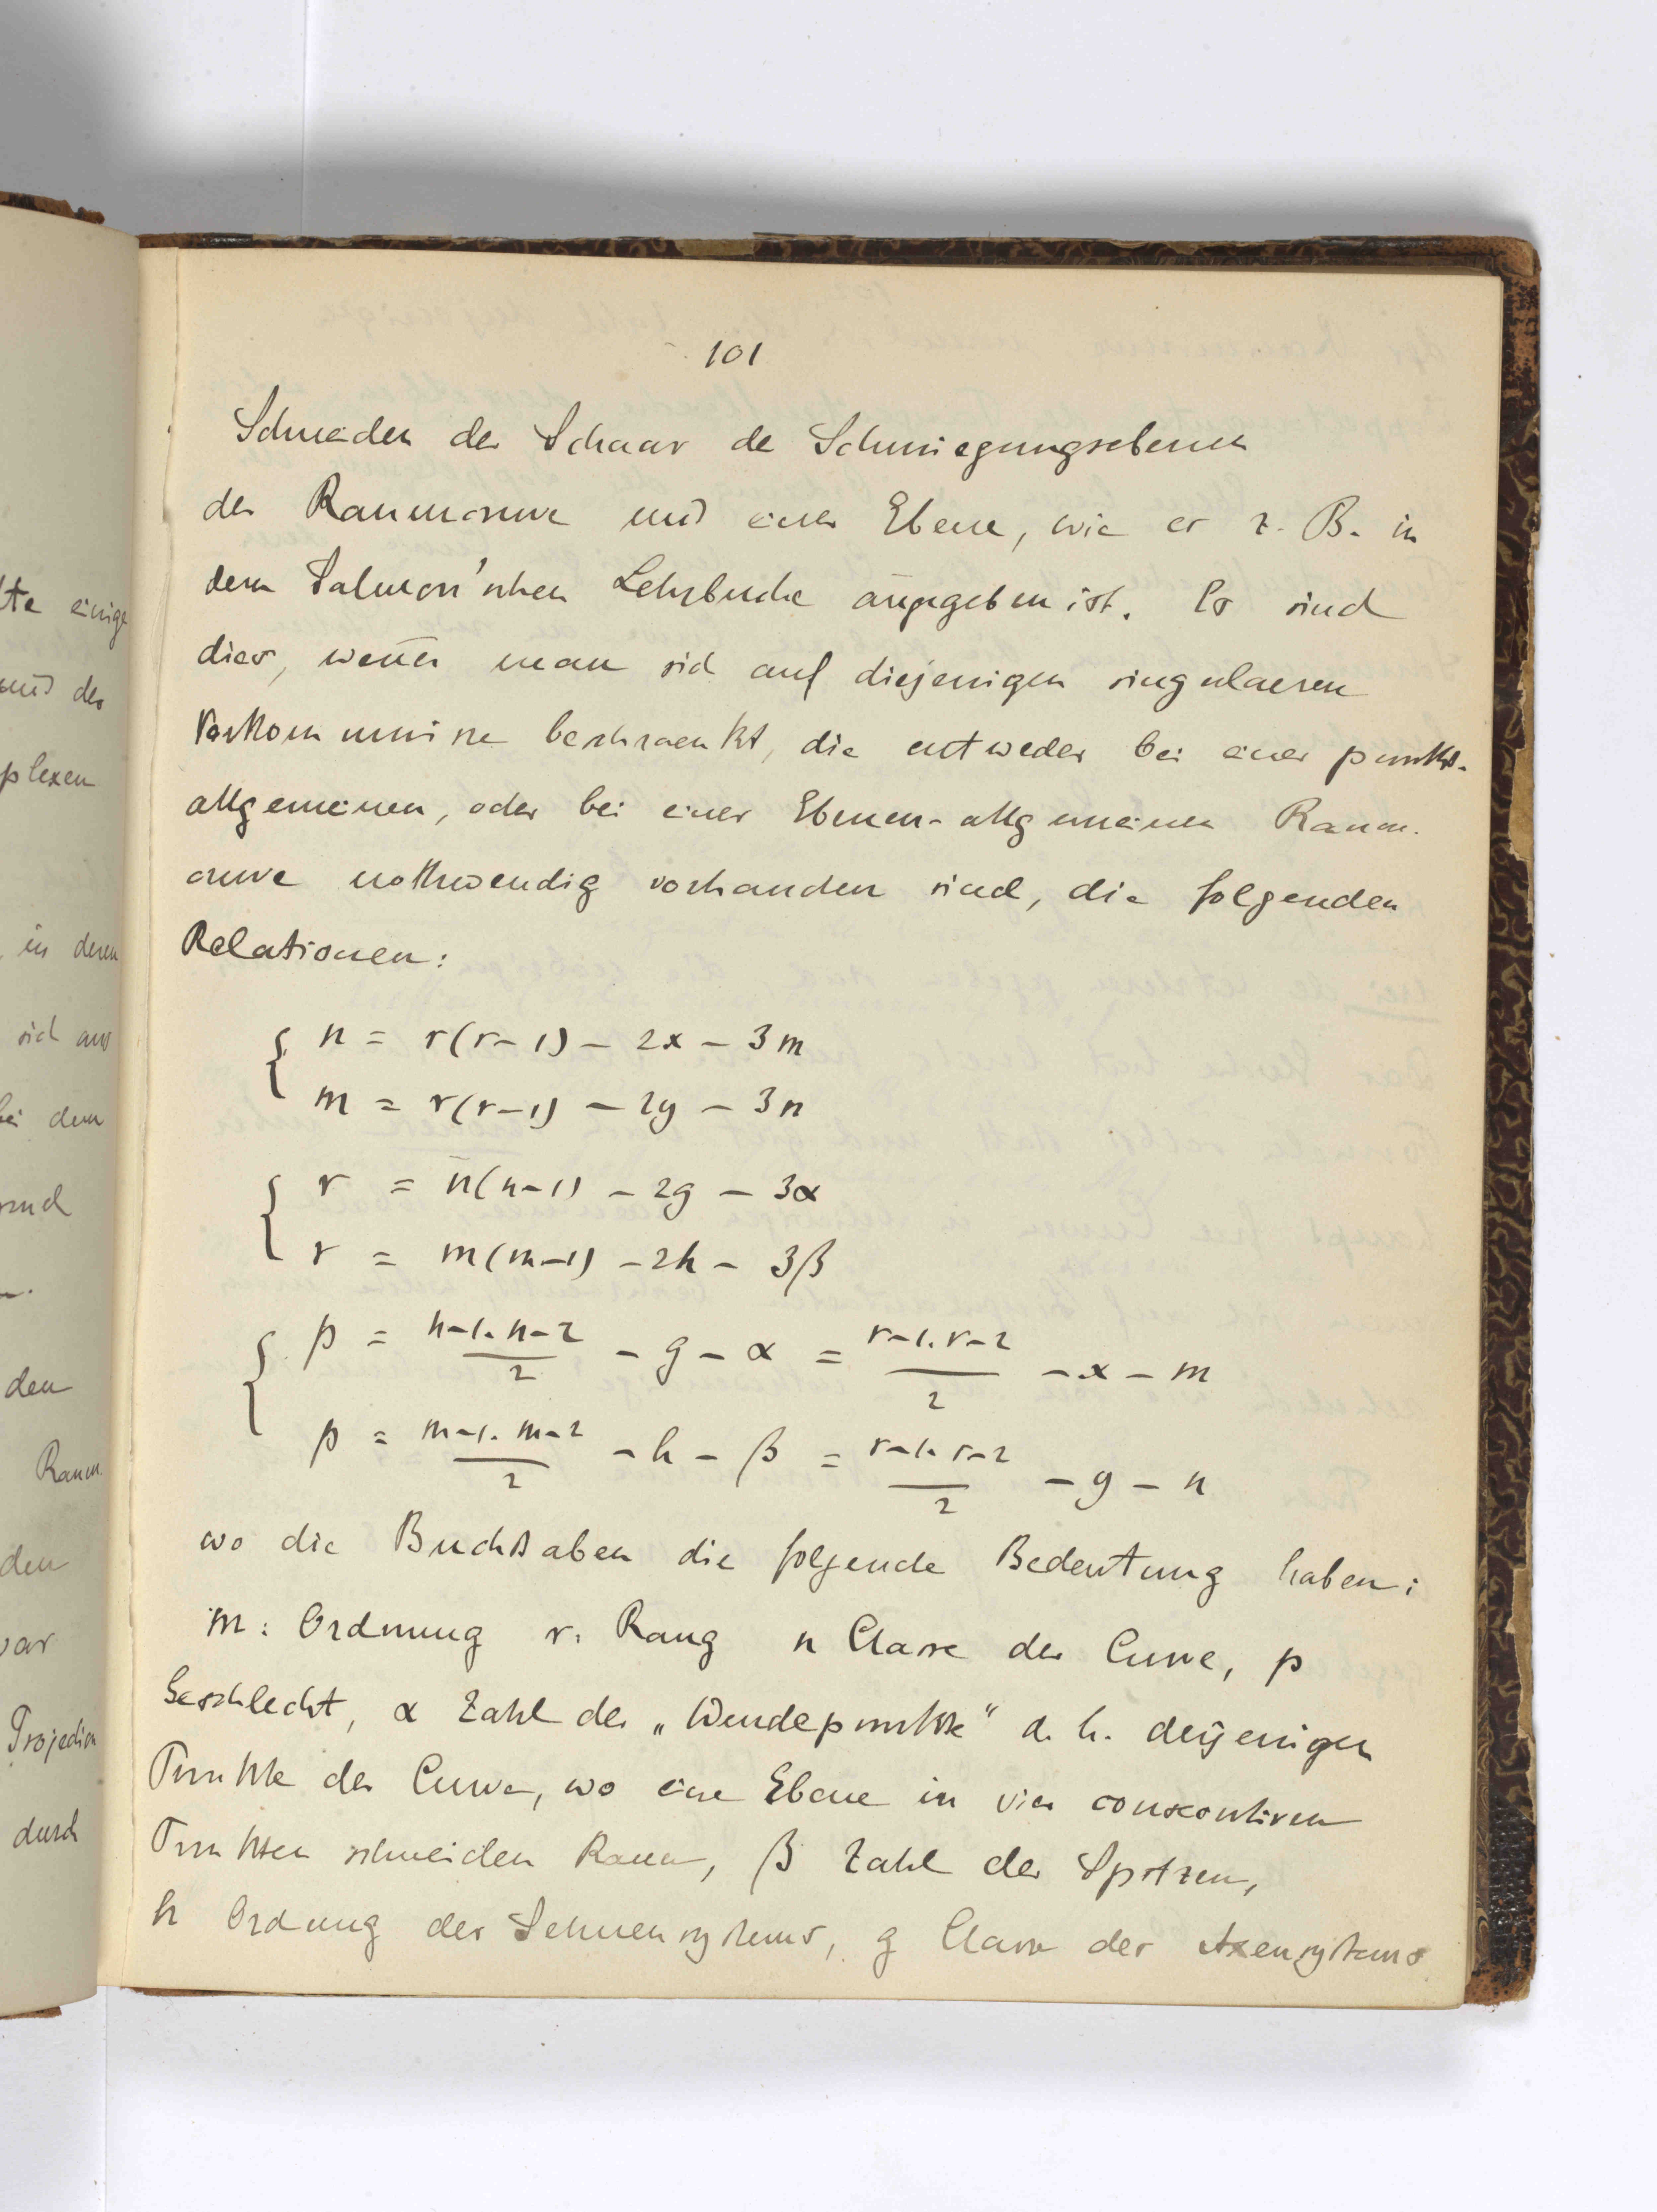 lte einige
und der
plexen
in deren
sich aus
bei dem
und
den
Raum-
den
war
Projection
durch
101
Schneiden der Schaar de Schmiegungsebenen
der Raumcurve und einer Ebene, wie er z. B. in
dem Salmon'schen Lehrbuche angegeben ist. Es sind
dies, wenn man sich auf diejenigen singulaeren
Vorkommnisse beschraenkt, die entweder bei einer punkt-
allgemeinen, oder bei einer Ebenen-allgemeinen Raum-
curve nothwendig vorhanden sind, die folgenden
Relationen:
n = r(r-1) - 2x - 3m
m = r(r-1) - 2y - 3n
r = n(n-1) - 2g - 3α
r = m(m-1) - 2h - 3β
p = n-1.n-2/2 - g - α = r-1.r-2/2 - x - m
p = m-1.m-2/2 - h - β = r-1.r-2/2 - y - n
wo die Buchstaben die folgende Bedeutung haben:
m: Ordnung r: Rang n Classe der Curve, p
Geschlecht, α Zahl der „Wendepunkte" d. h. derjenigen
Punkte der Curve, wo eine Ebene in vier consecutiven
Punkten schneiden kann, β Zahl der Spitzen,
h Ordnung des Sehnensystems, g Classe des Axensystems